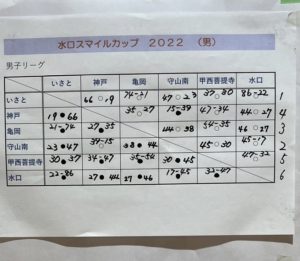 水口スマイルカップ 2022 （男）
男子リーグ
いさと 神戸 亀岡 守山南 甲西菩提寺 水口
いさと 66○19 74-31 47○23 37-30 86-22 1
神戸 19●66 35-27 15-39 47-34 44○27 4
亀岡 31-74 27-35 44○38 54-35 46○27 3
守山南 23●47 39-15 38●44 45○30 45-17 2
甲西菩提寺 30-37 34-47 35-54 30●45 47-32 5
水口 22-86 27●44 27●46 17-45 32-47 6